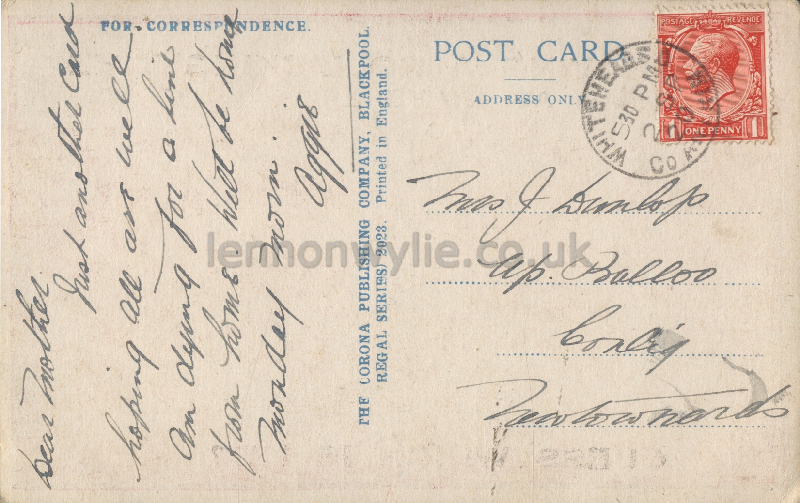 FOR CORRESPONDENCE.
Dear Mother.
Just another Card
hoping all are well.
am dying for a line
from home will be home
monday morn.
Aggie
THE CORONA PUBLISHING COMPANY, BLACKPOOL.
REGAL SERIES. 2023. Printed in England.
POST CARD
ADDRESS ONLY
POSTAGE REVENUE
ONE PENNY 1
WHITEHEAD
530 PM
CO
Mrs J. Dunlop
Balloo
Conlig
Newtownards
lennonwylie.co.uk